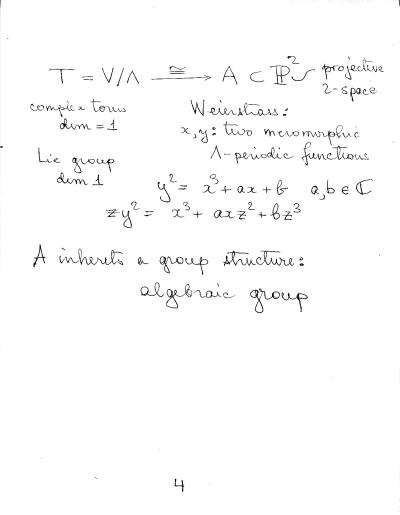 T = V/Λ ≅→ A ⊂ ℙ² projective 2-space
complex torus
dim = 1
Weierstrass:
x, y: two meromorphic
Λ-periodic functions
Lie group
dim 1
y² = x³ + ax + b a, b ∈ ℂ
zy² = x³ + axz² + bz³
A inherits a group structure:
algebraic group
4